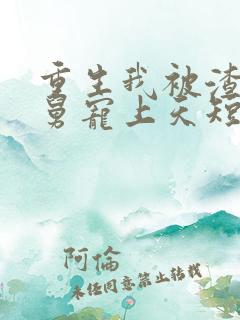 重生我被渣
舅寵上天短
阿倫
未經同意禁止轉載